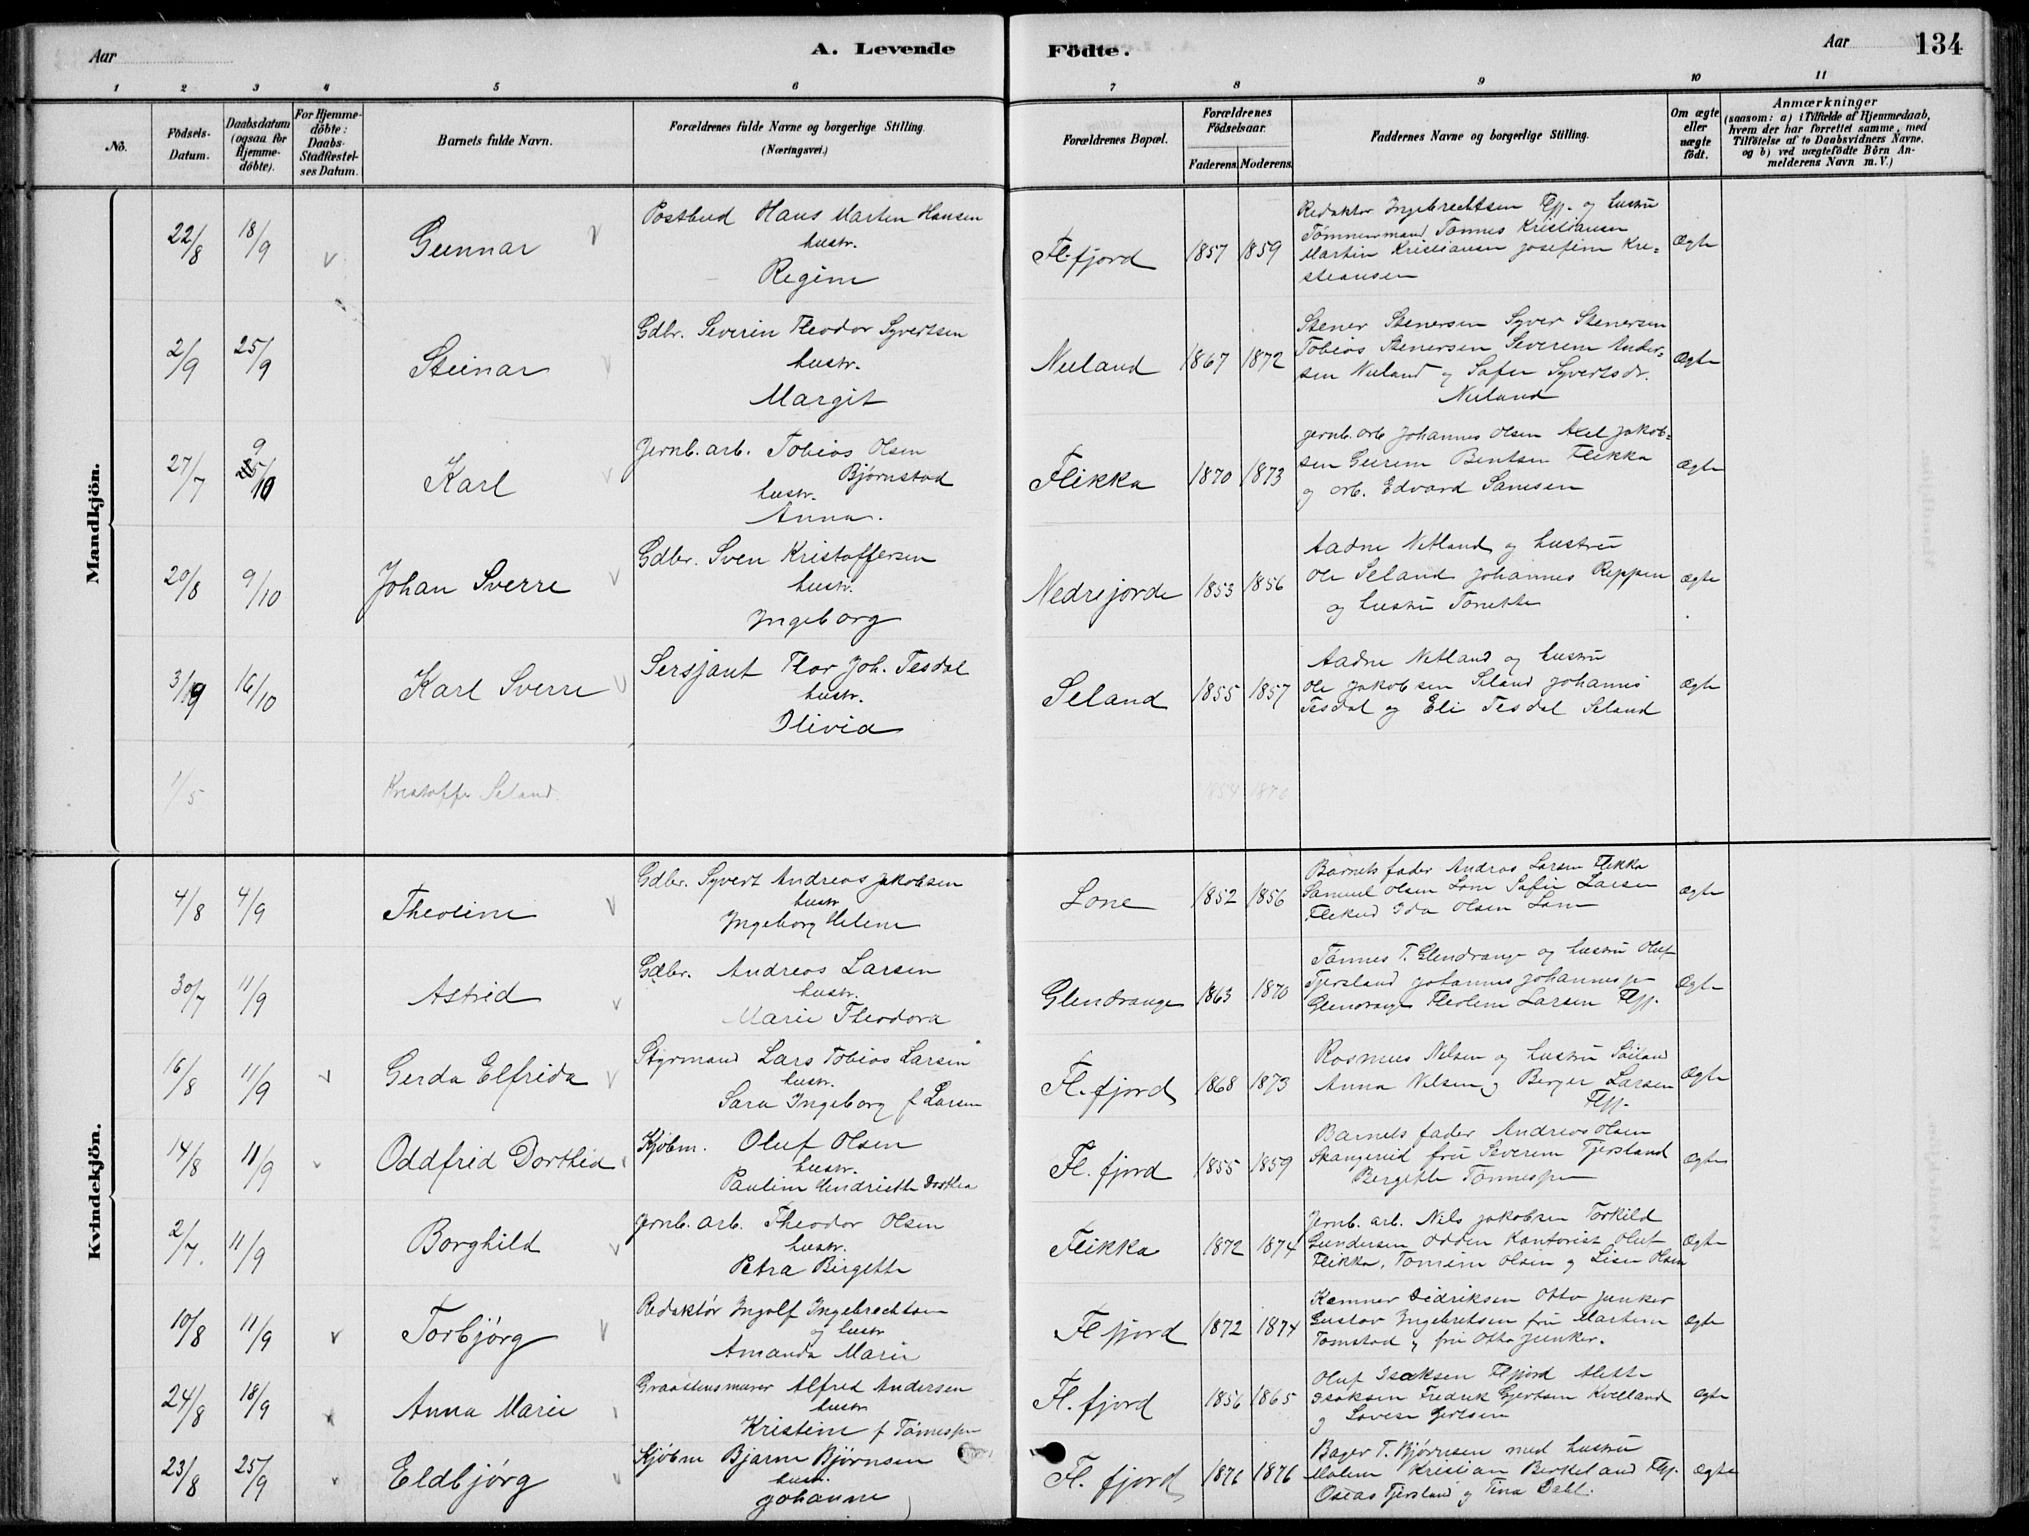 Aar
A. Levende
Födte.
Aar
134
1 2 3 4 5 6 7 8 9 10 11
No.
Födsels-Datum.
Daabsdatum (ogsaa for Hjemme-döbte).
For Hjemme-döbte: Daabs-Stadfæstel-ses Datum.
Barnets fulde Navn.
Forældrenes fulde Navne og borgerlige Stilling. (Næringsvei.)
Forældrenes Bopæl.
Forældrenes Födselsaar.
Faderens. Moderens.
Faddernes Navne og borgerlige Stilling.
Om ægte eller uægte födt.
Anmærkninger
(saasom: a) i Tilfælde af Hjemmedaab, hvem der har forrettet samme, med Tilföielse af to Daabsvidners Navne, og b) ved uægtefödte Börn An-melderens Navn m. V.)
Mandkjön.
22/8 18/9 Gunnar
Postbud Hans Martin Hansen
hustr.
Regine
Fl.fjord 1857 1859
Redaktør Ingebrechtsen Flfj. og hustru
Tömmermand Tönnes Kristiansen
Martin Kristiansen Josefine Kri-
stiansen
Ægte
2/9 25/9 Steinar
Gdbr. Severin Theodor Syvertsen
hustr.
Margit
Nuland 1867 1872
Stener Stenersen Syver Stenersen
Tobias Stenersen Severine Ander-
sen Nuland og Sofie Syvertsdr.
Nuland
Ægte
27/7 9/10 Karl
Jernb. arb. Tobias Olsen
Bjørnstad
hustr.
Anna.
Flikka 1870 1873
Jernb. arb Johannes Olsen Axel Jakob-
sen Bentsen Flikka
og arb. Edvard
Ægte
20/8 9/10 Johan Sverre
Gdbr. Sven Kristoffersen
hustr.
Ingeborg
Nedrejorde 1853 1856
Aadne Netland og hustru
Ole Seland Johannes Reppen
og hustru Tonette
Ægte
3/9 16/10 Karl Sverre
Sersjant Thor Joh. Tesdal
hustr.
Olivia
Seland 1855 1857
Aadne Netland og hustru
Ole Jakobsen Seland Johannes
Tesdal og Eli Tesdal Seland
Ægte
1/5 Kristoffer Seland.
Kvindekjön.
4/8 4/9 Theoline
Gdbr. Syvert Andreas Jakobsen
hustr
Ingeborg Helene
Lone 1852 1856
Barnets fader Andreas Larsen Flikka
Samuel Olsen Lone Sofie Larsen
Ida Olsen Lone
Ægte
30/7 11/9 Astrid
Gdbr. Andreas Larsen
hustr.
Marie Theodora
Glendrange 1863 1870
Tönnes T. Glendrange og hustru Oluf
Tjersland Johannes Johannesen
Glendrange Theoline Larsen Flfj.
Ægte
16/8 11/9 Gerda Elfrida
Styrmand Lars Tobias Larsen
hustr.
Sara Ingeborg f Larsen
Fl.fjord 1868 1873
Rasmus Nilsen og hustru
Anna Nilsen og Berger Larsen
Flfj.
Ægte
14/8 11/9 Oddfrid Dorthea
Kjöbm. Oluf Olsen
hustr.
Pauline Hendriette Dorthea
Fl. fjord 1855 1859
Barnets fader Andreas Olsen
fru Severine Tjersland
Bergitte Tönnesen
Ægte
2/7. 11/9 Borghild
Jernb. arb. Theodor Olsen
hustr.
Petra Birgitte
Flikka 1872 1874
Jernb. arb. Nils Jakobsen Torkild
Gundersen Odden Kontorist Oluf
Flikka, Tomine Olsen og Lise Olsen
Ægte
10/8 11/9 Torbjørg
Redaktør Ingolf Ingebrechtsen
og hustr
Amanda Marie
Fl fjord 1872 1874
Kemner Didriksen Otto Junker
Gustav Ingebretsen fru Martine
Tomstad og fru Otto Junker.
Ægte
24/8 18/9 Anna Marie
Graastensmurer Alfred Andersen
hustr
Kristine f Tönnesen
Fl. fjord 1856 1865
Oluf Isaksen Flfjord Alette
Isaksen Fredrik Gjertsen Kvelland
og Lovise Gertsen
Ægte
23/8 25/9 Eldbjørg
Kjöbm Bjarne Bjørnsen
hustr.
Johanne
Fl. fjord 1876 1876
Bager T. Bjørnsen med hustru
Malene Kristian Birkeland Flfj.
Oseas Tjersland og Tina Dahl.
Ægte